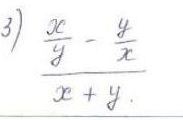 3) \frac{\frac{x}{y} - \frac{y}{x}}{x + y}.